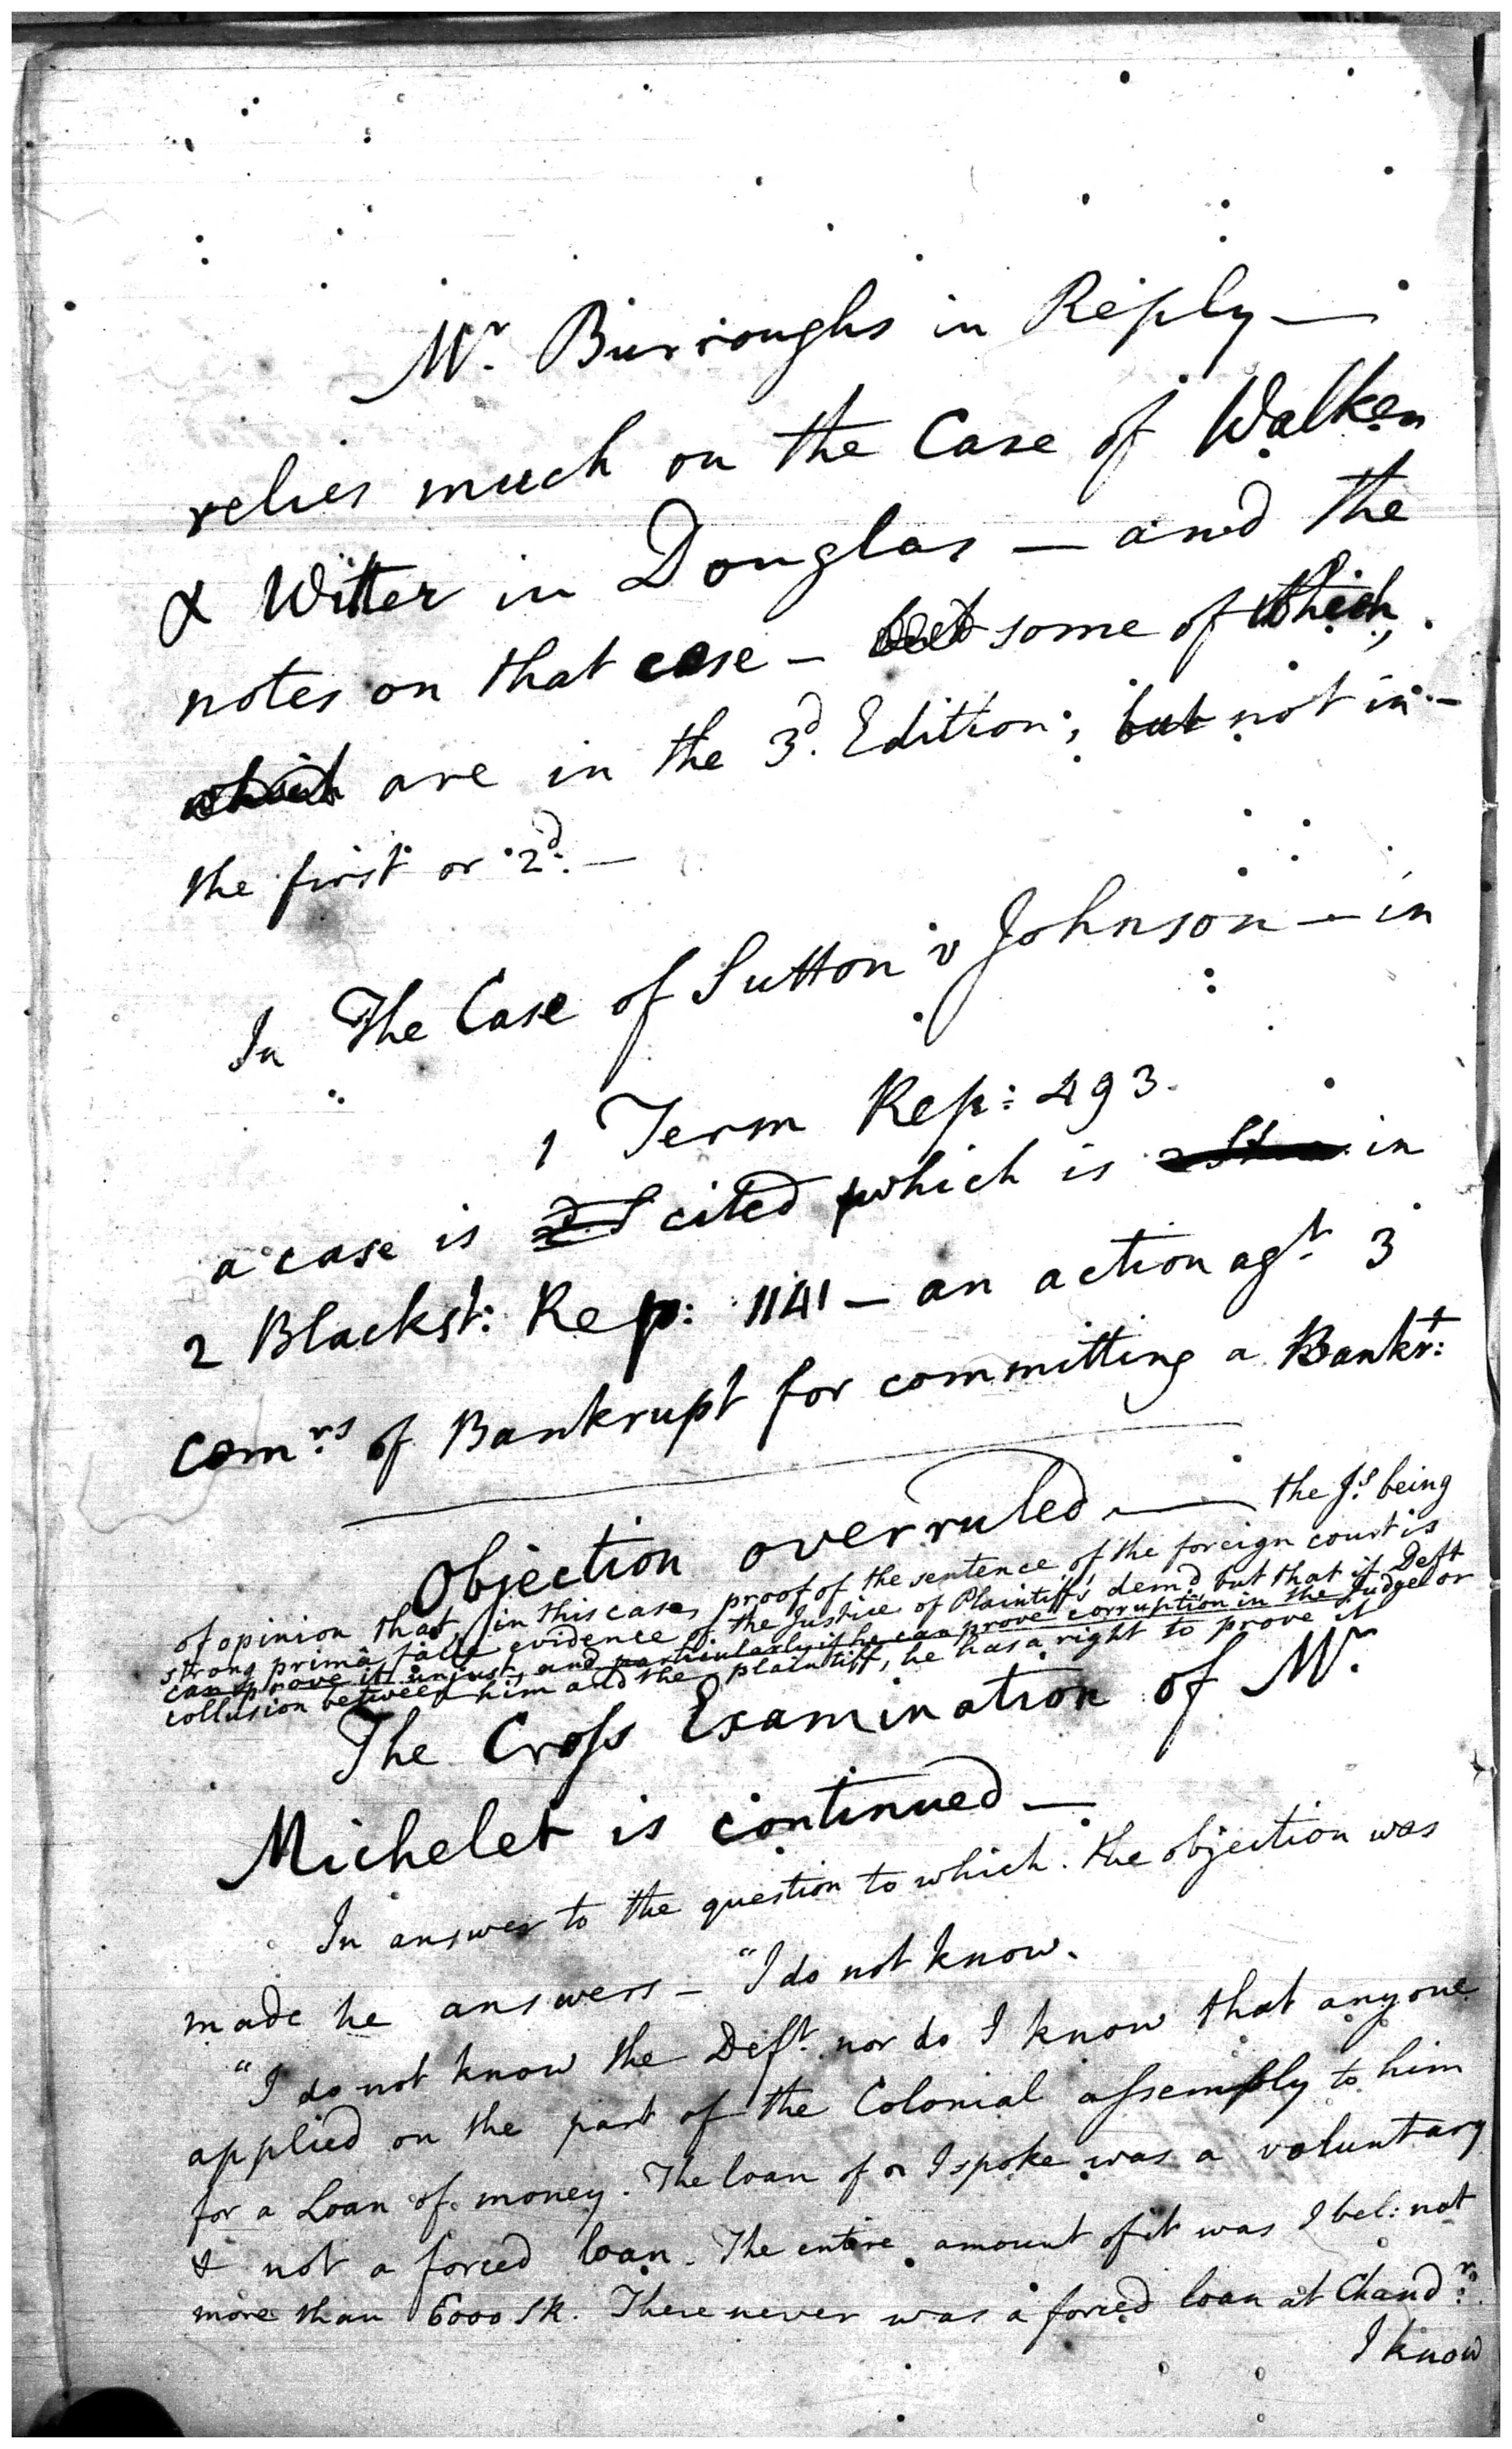 Mr. Burroughs in Reply —
relies much on the Case of Walker
& Witter in Douglas — and the
notes on that case — but some of which,
which are in the 3d. Edition; but not in —
the first or 2d. —
In The Case of Sutton v Johnson — in
1 Term Rep: 493.
a case is cited which is in
2 Blackst: Rep: 1141 — an action agt. 3
comrs. of Bankrupt for committing a Bankrt:
Objection overruled — the Js. being
of opinion that, in this case, proof of the sentence of the foreign court is
strong primâ facie evidence of the Justice of Plaintiff's demd. but that if Deft
can prove it unjust, and particularly if he can prove corruption in the Judge or
collusion between him and the plaintiff, he has a right to prove it
The Cross Examination of Mr.
Michelet is continued —
In answer to the question to which the objection was
made he answers — "I do not know.
"I do not know the Deft. nor do I know that anyone
applied on the part of the Colonial assembly to him
for a Loan of money. The loan of I spoke was a voluntary
& not a forced loan. The entire amount of it was I bel: not
more than 6000 SR. There never was a forced loan at Chandr.
I know